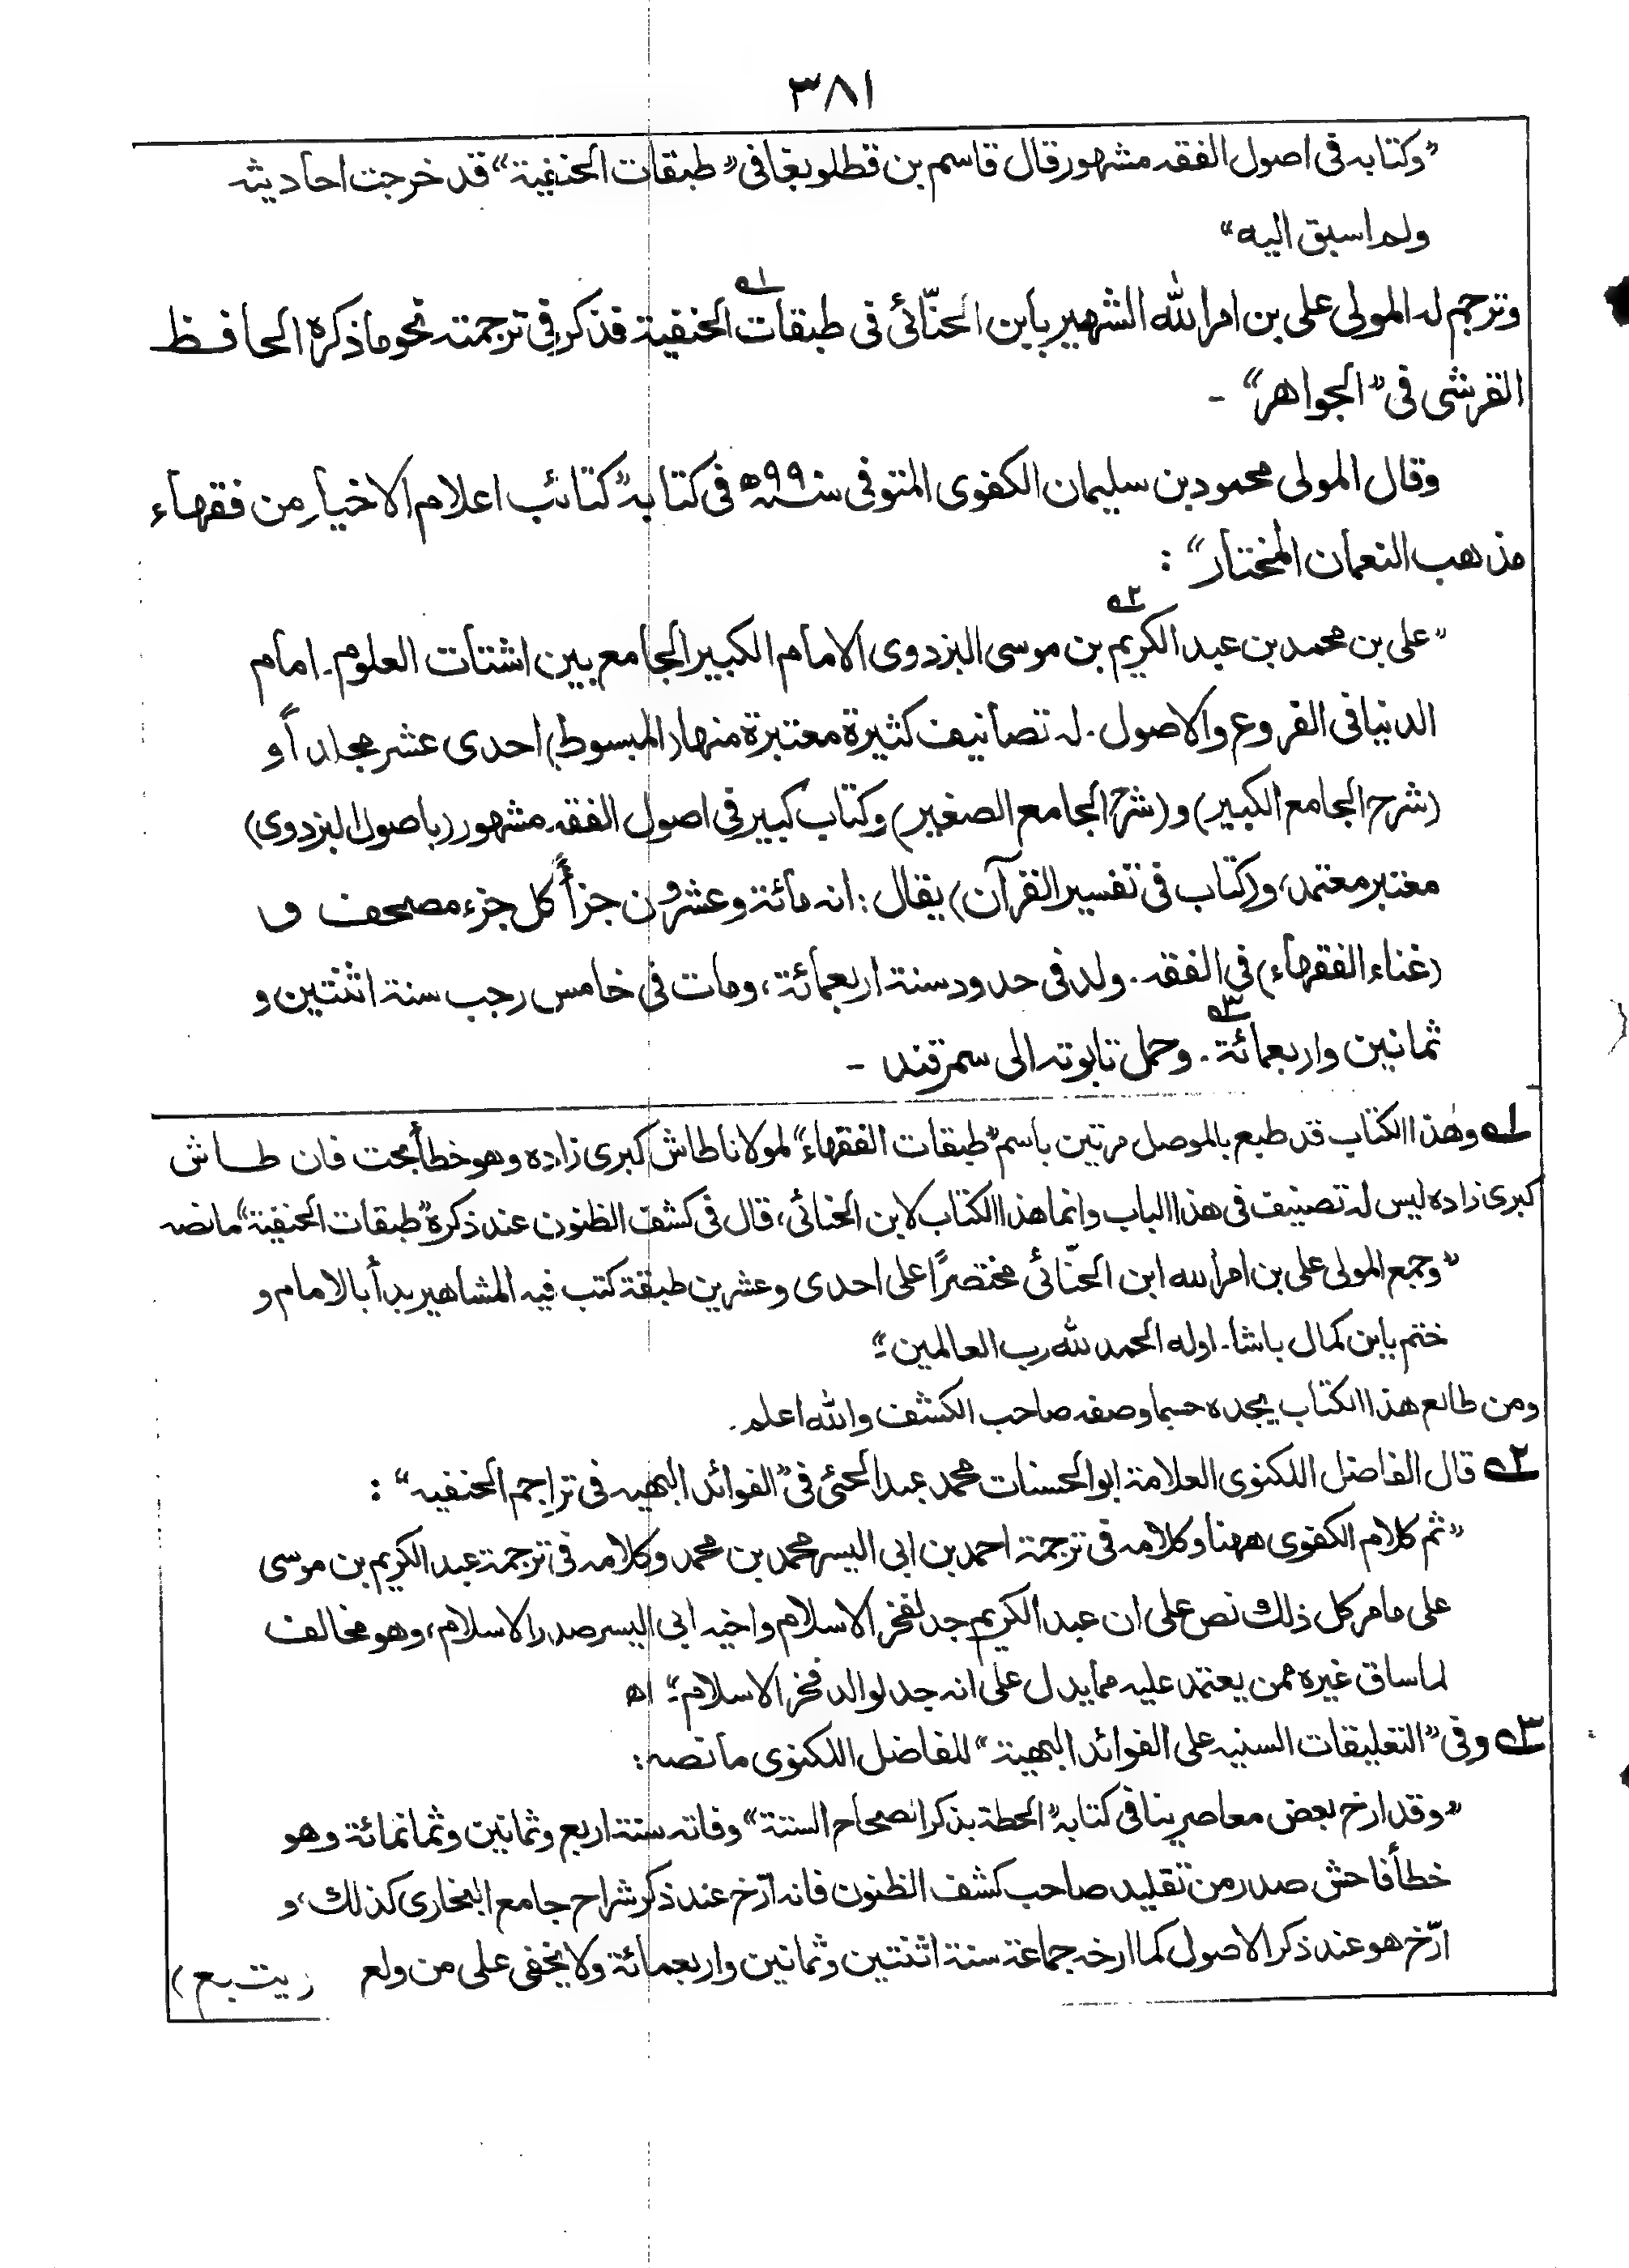 ٣٨١
”وكتابه فى اصول الفقه مشهور قال قاسم بن قطلوبغا فى ”طبقات الحنفية“ قد خرجت احاديثه
ولم اسبق اليه“
وترجم له المولى على بن امر الله الشهير بابن الحنّائى فى طبقات الحنفية ١ فذكر فى ترجمته نحو ما ذكره الحافظ
القرشى فى ”الجواهر“ -
وقال المولى محمود بن سليمان الكفوى المتوفى سنة ٩٩٠ھ فى كتابه ”كتائب اعلام الاخيار من فقهاء
مذهب النعمان المختار“ :
”على بن محمد بن عبد الكريم ٢ بن موسى البزدوى الامام الكبير الجامع بين اشتات العلوم۔ امام
الدنيا فى الفروع والاصول۔ له تصانيف كثيرة معتبرة منها (المبسوط) احدى عشر مجلداً و
(شرح الجامع الكبير) و (شرح الجامع الصغير) وكتاب كبير فى اصول الفقه مشهور (باصول البزدوى)
معتبر معتمد، و(كتاب فى تفسير القرآن) يقال : انه مائة وعشرون جزأً كل جزء مصحف و
(غناء الفقهاء) فى الفقه۔ ولد فى حدود سنة اربعمائة، ومات فى خامس رجب سنة اثنتين و
ثمانين واربعمائة ٣۔ وحمل تابوته الى سمرقند -
١ وهٰذا الكتاب قد طبع بالموصل مرتين باسم ”طبقات الفقهاء“ لمولانا طاش كبرى زاده وهو خطأ بحت فان طاش
كبرى زاده ليس له تصنيف فى هذا الباب وانما هذا الكتاب لابن الحنائى، قال فى كشف الظنون عند ذكره ”طبقات الحنفية“ ما نصه
”وجمع المولى على بن امر الله ابن الحنّائى مختصرًا على احدى وعشرين طبقة كتب فيه المشاهير بدأ بالامام و
ختم بابن كمال باشا۔ اوله الحمد لله رب العالمين“۔
ومن طالع هذا الكتاب يجده حسبما وصفه صاحب الكشف والله اعلم۔
٢ قال الفاضل اللكنوى العلامة ابو الحسنات محمد عبد الحئى فى ”الفوائد البهيه فى تراجم الحنفيه“ :
”ثم كلام الكفوى ههنا وكلامه فى ترجمة احمد بن ابى اليسر محمد بن محمد وكلامه فى ترجمة عبد الكريم بن موسى
على ما مر كل ذلك نص على ان عبد الكريم جد لفخر الاسلام واخيه ابى اليسر صدر الاسلام، وهو مخالف
لما ساق غيره ممن يعتمد عليه مما يدل على انه جد لوالد فخر الاسلام“۔ اھ
٣ وفى ”التعليقات السنيه على الفوائد البهية“ للفاضل اللكنوى ما نصه :
”وقد ارخ بعض معاصرينا فى كتابه ”الحطة بذكر الصحاح الستة“ وفاته سنة اربع وثمانين وثمانمائة وهو
خطأ فاحش صدر من تقليد صاحب كشف الظنون فانه ارّخ عند ذكر شراح جامع البخارى كذلك، و
ارّخ هو عند ذكر الاصول كما ارخه جماعة سنة اثنتين وثمانين واربعمائة ولا يخفى على من ولع (يتبع)